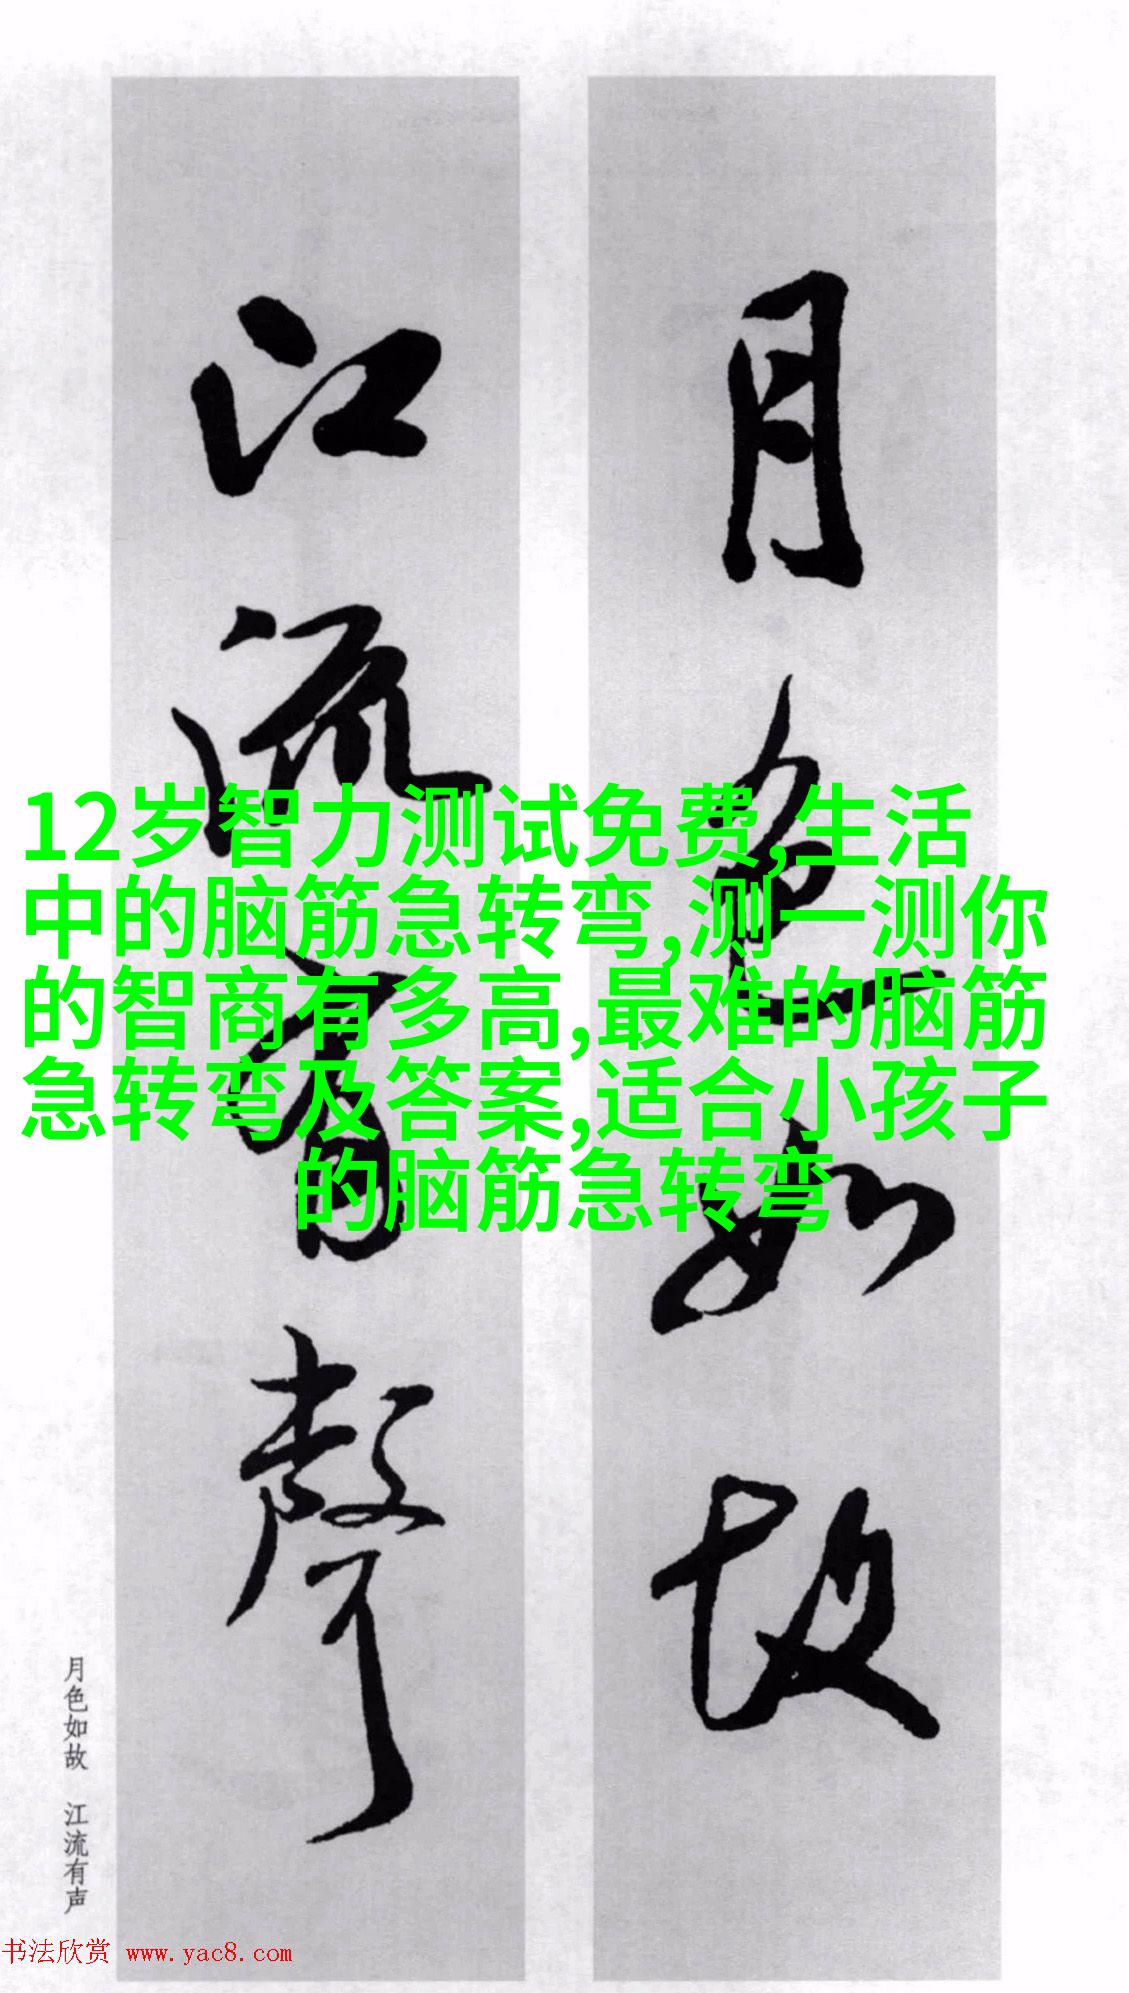 月色如故
江流有聲
12岁智力测试免费,生活
中的脑筋急转弯,测一测你
的智商有多高,最难的脑筋
急转弯及答案,适合小孩子
的脑筋急转弯
月色如故 江流有声
书法欣赏 www.yac8.com